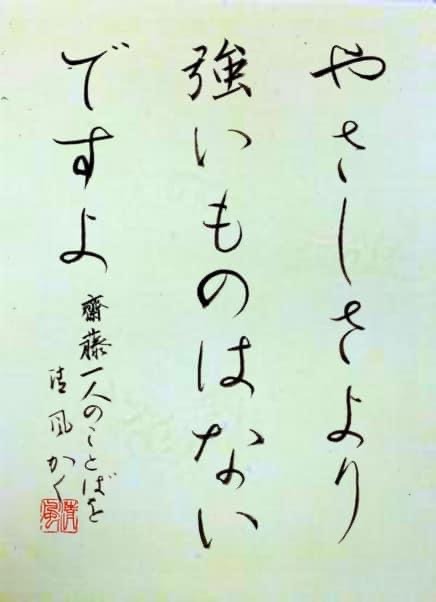 やさしさより
強いものはない
ですよ
齋藤一人のことばを
清風かく
清風